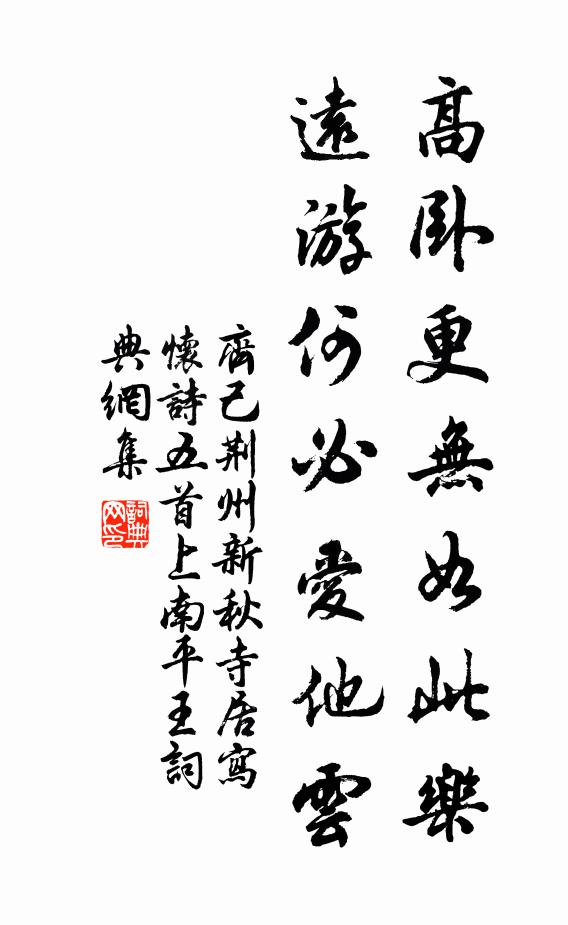 高卧更無如此樂
遠游何必愛他雲
齊己荆州新秋寺居寫
懷詩五首上南平王詞
典網集
詞典
网印